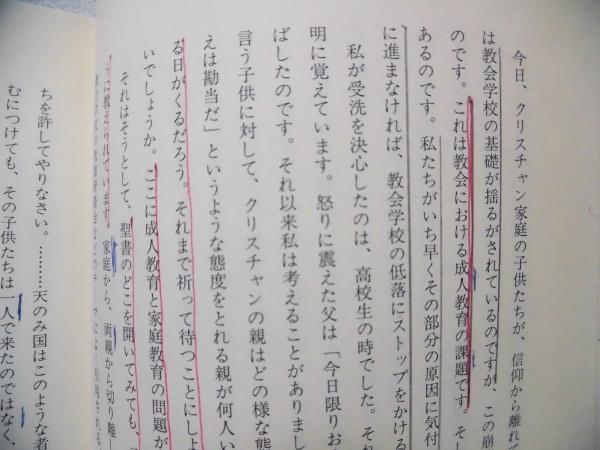 今日、クリスチャン家庭の子供たちが、信仰から離れて
は教会学校の基礎が揺るがされているのですが、この崩
のです。これは教会における成人教育の課題です。そし
あるのです。私たちがいち早くその部分の原因に気付
に進まなければ、教会学校の低落にストップをかける
私が受洗を決心したのは、高校生の時でした。それ
明に覚えています。怒りに震えた父は「今日限りお
ばしたのです。それ以来私は考えることがありまし
言う子供に対して、クリスチャンの親はどの様な態
えは勘当だ」というような態度をとれる親が何人い
る日がくるだろう。それまで祈って待つことにしよ
いでしょうか。ここに成人教育と家庭教育の問題が
それはそうとして、聖書のどこを開いてみても、
うに教えられています。家庭から、両親から切り離し
ちを許してやりなさい。………天のみ国はこのような者
むにつけても、その子供たちは一人で来たのではなく、